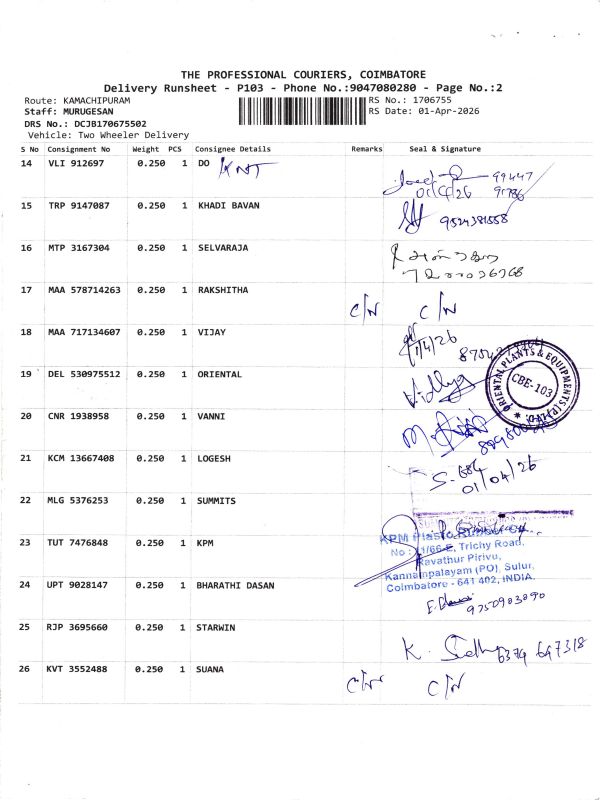 THE PROFESSIONAL COURIERS, COIMBATORE
Delivery Runsheet - P103 - Phone No.:9047080280 - Page No.:2
Route: KAMACHIPURAM RS No.: 1706755
Staff: MURUGESAN RS Date: 01-Apr-2026
DRS No.: DCJB170675502
Vehicle: Two Wheeler Delivery
S No Consignment No Weight PCS Consignee Details Remarks Seal & Signature
14 VLI 912697 0.250 1 DO KNT 99447
01/04/26 91786
15 TRP 9147087 0.250 1 KHADI BAVAN 9524381558
16 MTP 3167304 0.250 1 SELVARAJA
17 MAA 578714263 0.250 1 RAKSHITHA C/N C/N
18 MAA 717134607 0.250 1 VIJAY 1/4/26
19 DEL 530975512 0.250 1 ORIENTAL Vidhya
ORIENTAL PLANTS & EQUIPMENTS (P) LTD.
CBE-103
20 CNR 1938958 0.250 1 VANNI
21 KCM 13667408 0.250 1 LOGESH
01/04/26
22 MLG 5376253 0.250 1 SUMMITS
23 TUT 7476848 0.250 1 KPM
KPM Plastic
Trichy Road,
Ravathur Pirivu,
Kannampalayam (PO), Sulur,
Coimbatore - 641 402, INDIA.
24 UPT 9028147 0.250 1 BHARATHI DASAN 9750903090
25 RJP 3695660 0.250 1 STARWIN K. 6379 647318
26 KVT 3552488 0.250 1 SUANA C/N C/N